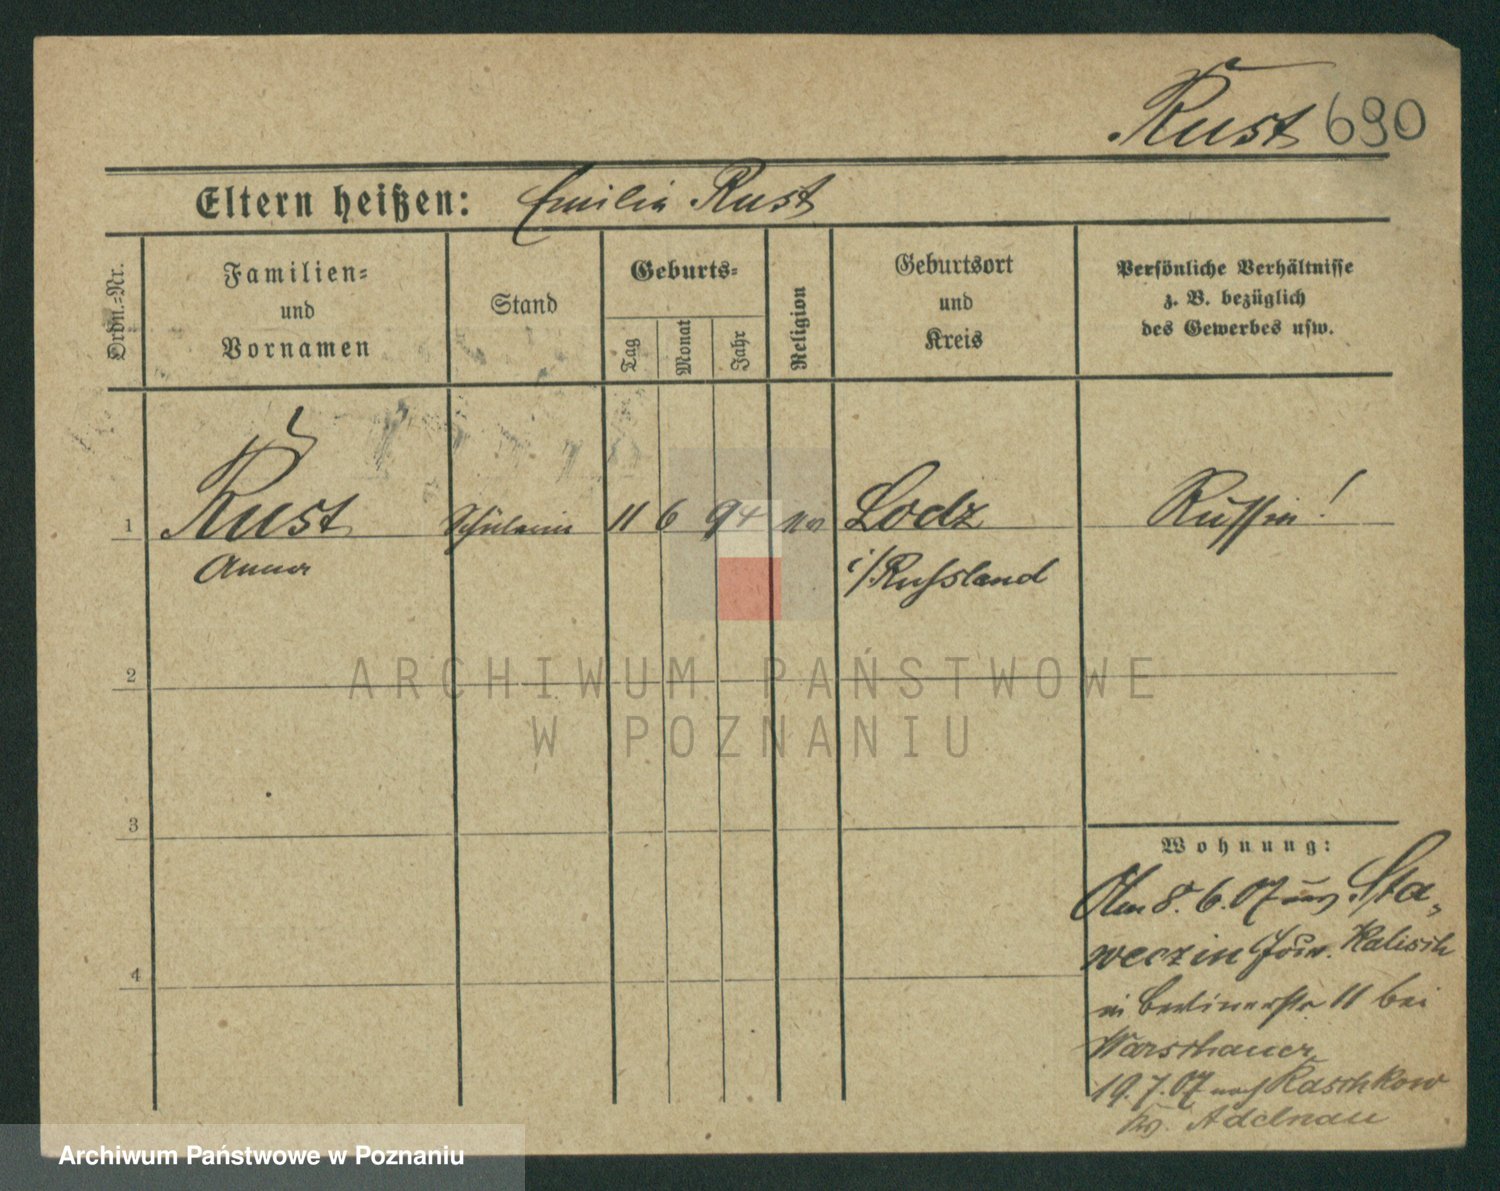 Rust 690
Eltern heißen: Emilia Rust
Ordn.-Nr.
Familien-
und
Vornamen
Stand
Geburts-
Tag
Monat
Jahr
Religion
Geburtsort
und
Kreis
Persönliche Verhältnisse
z. B. bezüglich
des Gewerbes usw.
1 Rust Schülerin 11 6 94 Lodz Russin!
Anna i/Russland
2
3
4
Wohnung:
8.6.07 aus Sta-
weczin Gouv. Kalisch
in Berlinerstr 11 bei
Warschauer
19.7.07 nach Raschkow
Kr. Adelnau
ARCHIWUM PAŃSTWOWE
W POZNANIU
Archiwum Państwowe w Poznaniu